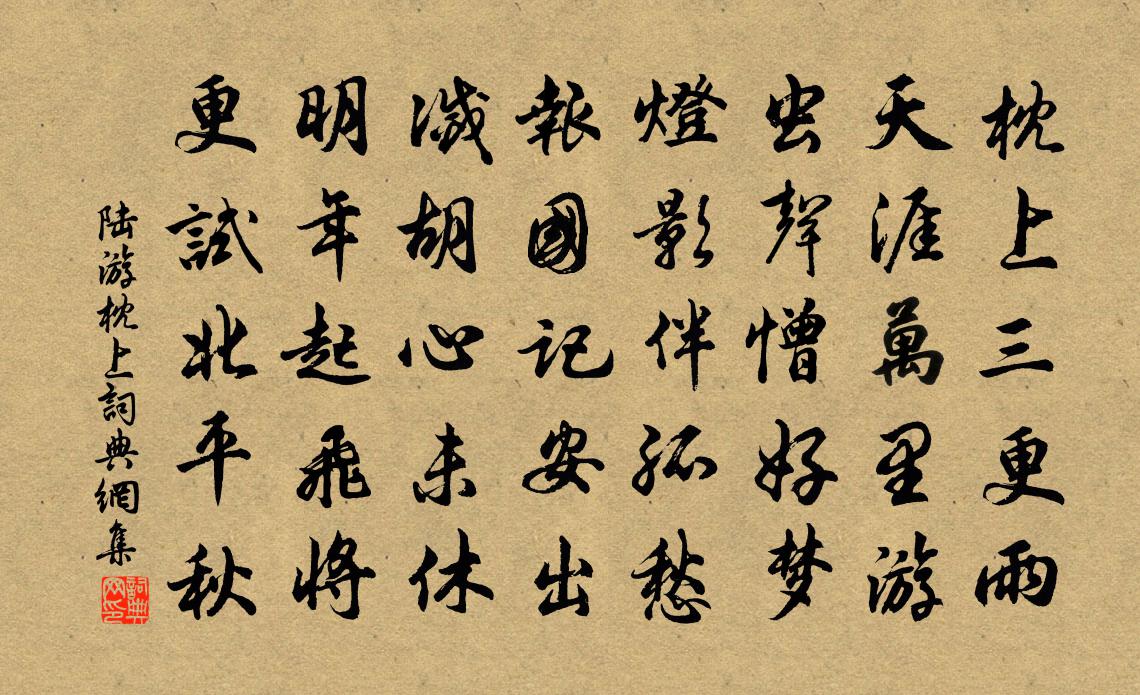 枕上三更雨
天涯萬里游
虫聲憎好梦
燈影伴孤愁
報國記安出
滅胡心未休
明年起飛將
更試北平秋
陆游枕上詞典網集
詞典网印